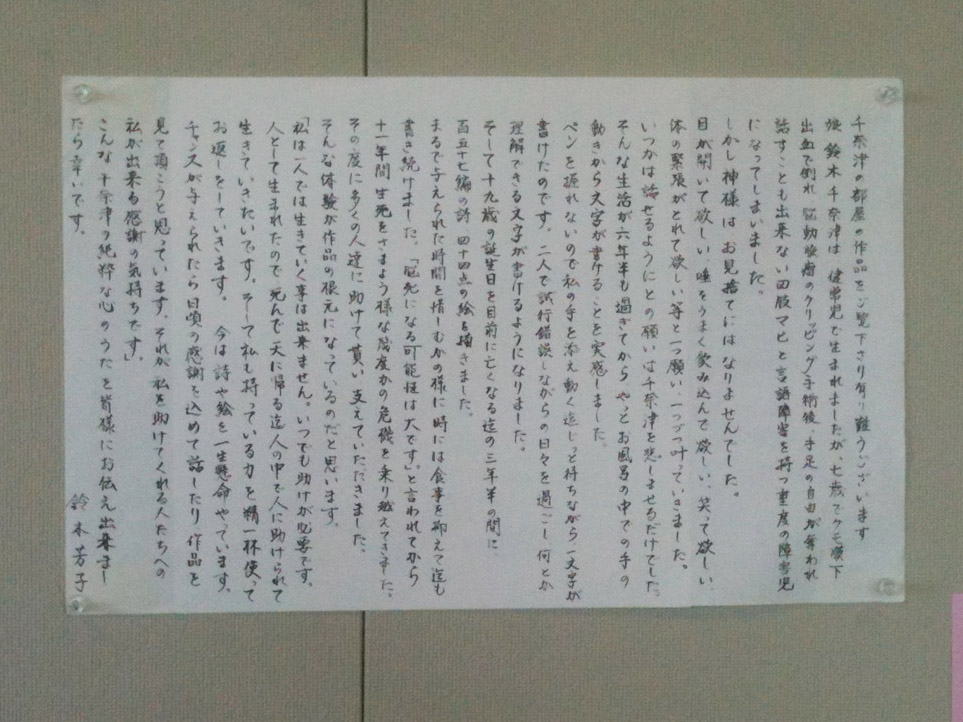 千奈津の部屋の作品をご覧下さり有り難うございます
娘 鈴木千奈津は 健常児で生まれましたが、七歳でクモ膜下
出血で倒れ 脳動脈瘤のクリッピング手術後、手足の自由が奪われ
話すことも出来ない四肢マヒと言語障害を持つ重度の障害児
になってしまいました。
しかし神様は お見捨てにはなりませんでした。
目が開いて欲しい、唾をうまく飲み込んで欲しい、笑って欲しい、
体の緊張がとれて欲しい等と一つ願い、一つづつ叶っていきました。
いつかは話せるようにとの願いは千奈津を悲しませるだけでした。
そんな生活が六年半も過ぎてから やっとお風呂の中での手の
動きから文字が書けることを実感しました。
ペンを握れないので私の手を添え動く迄じっと待ちながら一文字が
書けたのです。二人で試行錯誤しながらの日々を過ごし 何とか
理解できる文字が書けるようになりました。
そして十九歳の誕生日を目前に亡くなる迄の三年半の間に
百五十七編の詩 四十四点の絵を描きました。
まるで与えられた時間を惜しむかの様に 時には食事を抑えて迄も
書き続けました。「脳死になる可能性は大です」と言われてから
十一年間 生死をさまよう様な幾度かの危機を乗り越えてきました。
その度に多くの人達に助けて貰い 支えていただきました。
そんな体験が作品の根元になっているのだと思います。
「私は一人では生きていく事は出来ません。いつでも助けが必要です。
人として生まれたので 死んで天に帰る迄 人の中で人に助けられて
生きていきたいです。そして私も持っている力を精一杯使って
お返しをしていきます。 今は詩や絵を一生懸命やっています。
チャンスが与えられたら日頃の感謝を込めて話したり 作品を
見て頂こうと思っています。それが 私を助けてくれる人たちへの
私が出来る感謝の気持ちです」
こんな千奈津の純粋な心のうたを皆様にお伝え出来まし
たら幸いです。
鈴木芳子